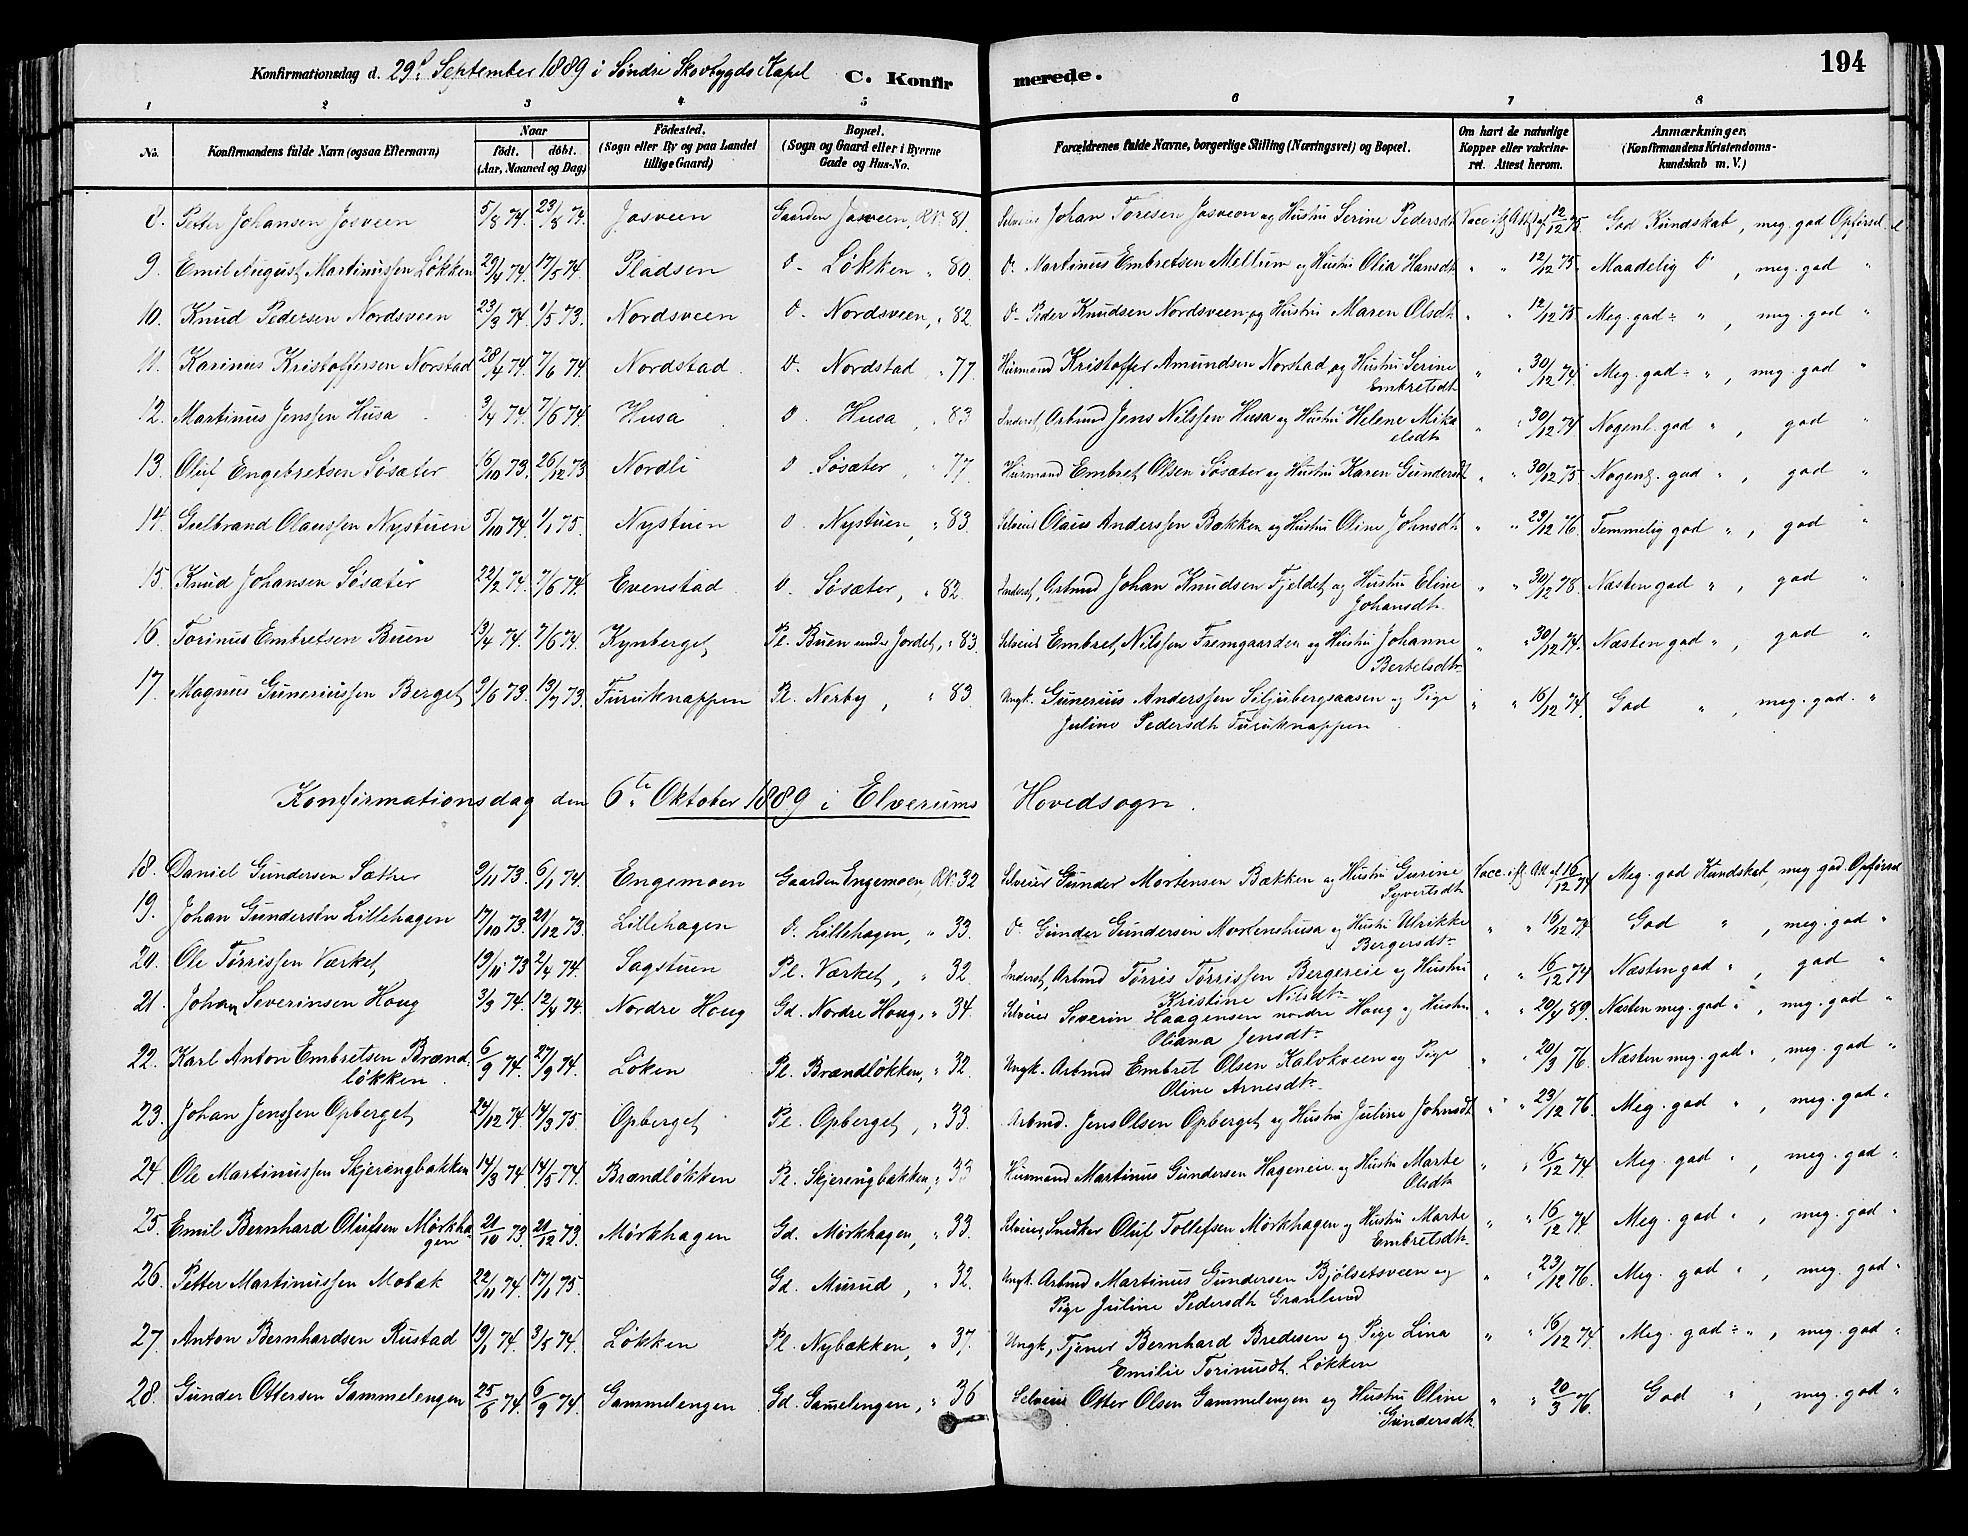 194
Konfirmationsdag d. 29de September 1889 i Søndre Skovbygds Kapel C. Konfirmerede.
1 2 3 4 5 6 7 8
No. Konfirmandens fulde Navn (ogsaa Efternavn) Naar födt. döbt. (Aar, Maaned og Dag) Födested. (Sogn eller By og paa Landet tillige Gaard) Bopæl. (Sogn og Gaard eller i Byerne Gade og Hus-No. Forældrenes fulde Navne, borgerlige Stilling (Næringsvei) og Bopæl. Om havt de naturlige Kopper eller vakcineret. Attest herom. Anmærkninger. (Konfirmandens Kristendomskundskab m. V.)
8. Petter Johansen Josveen 5/8 74. 23/8 74. Josveen Gaarden Josveen, RN. 81. Selveier Johan Toresen Josveen og Hustru Serine Pedersdt. Vacc. ifl. Att. af 12/12 75. God Kundskab, meg. god Opførsel
9. Emil August Martinussen Løkken 29/4 74. 17/5 74. Pladsen d. Løkken " 80. d. Martinus Embretsen Mellum og Hustru Olia Hansdt. " " 12/12 75. Maadelig d., meg. god "
10. Knud Pedersen Nordsveen 23/3 74. 1/5 73. Nordsveen d. Nordsveen, " 82. d. Peder Knudsen Nordsveen, og Hustru Maren Olsdt. " " 12/12 75. Meg. god ÷ ", meg. god "
11. Karinus Kristoffersen Norstad 28/4 74. 7/6 74. Nordstad. d. Nordstad, " 77. Husmand Kristoffer Amundsen Norstad og Hustru Serine Embretsdt. " " 30/12 74. Meg. god ÷ ", meg. god "
12. Martinus Jenssen Husa 3/4 74. 7/6 74. Husa d. Husa, " 83 Inderst, Arbmd Jens Nilssen Husa og Hustru Helene Mikaelsdt. " " 30/12 74. Nogenl. god ", god "
13. Oluf Engebretsen Søsæter 16/10 73. 26/12 73. Nordli d. Søsæter, " 77. Husmand Embret Olsen Søsæter og Hustru Karen Gundersdt. " " 30/12 75 Nogenl. god ", god "
14. Gulbrand Olaussen Nystuen 5/10 74. 1/1 75. Nystuen d. Nystuen, " 83. Selveier Olaus Anderssen Bækken og Hustru Oline Johnsdt. " " 23/12 76. Temmelig god ", god "
15. Knud Johansen Søsæter 22/2 74. 7/6 74. Evenstad d. Søsæter, " 82. Inderst, Arbmd Johan Knudsen Fjeldet og Hustru Eline Johansdt. " " 30/12 78. Næsten god ", god "
16. Torinus Embretsen Buen 13/4 74. 7/6 74. Kynberget Pl. Buen under Jordet, " 83. Selveier Embret Nilssen Fremgaarden og Hustru Johanne Bertelsdt. " " 30/12 74. Næsten god ", god "
17. Magnus Guneriussen Berget 9/6 73. 13/7 73. Furuknappen Pl. Nerby, " 83 Ungk. Gunerius Anderssen Siljubergsaasen og Pige Juline Pedersdt. Furuknappen. " " 16/12 74. God ", meg. god. "
Konfirmationsdag den 6te Oktober 1889 i Elverums Hovedsogn.
18. Daniel Gundersen Sæther 9/11 73. 6/1 74. Engemoen Gaarden Engemoen, RN. 32 Selveier Gunder Mortensen Bækken og Hustru Gurine Syvertsdt. Vacc. ifl. Att. af 16/12 74 Meg. god Kundskab, meg. god Opførsel
19. Johan Gundersen Lillehagen 17/10 73. 21/12 73. Lillehagen d. Lillehagen, " 33. d. Gunder Gundersen Mortenshusa og Hustru Ulrikke Bergersdt. " " 16/12 74 God ", meg. god "
20. Ole Tørrissen Værket 19/11 73 2/4 74. Sagstuen Pl. Værket, " 32. Inderst, Arbmd Tørris Tørrissen Bergereie og Hustru Kristine Nilsdt. " " 16/12 74 Næsten god ", god "
21. Johan Severinsen Houg 3/3 74. 12/4 74. Nordre Houg Gd. Nordre Houg, " 34. Selveier Severin Haagensen nordre Houg og Hustru Oliana Jensdt. " " 20/4 89. Næsten meg. god ", meg. god "
22. Karl Anton Embretsen Brændløkken. 6/9 74. 27/9 74. Løken Pl. Brændløkken, " 32. Ungk. Arbmd Embret Olsen Kalvkveen og Pige Oline Arnesdt. " " 20/3 76. Næsten meg. god ", meg. god "
23. Johan Jenssen Opberget 24/12 74. 14/3 75. Opberget Pl. Opberget, " 33. Arbmd. Jens Olsen Opberget og Hustru Juline Johnsdt. " " 23/12 76. Meg. god ", meg. god "
24. Ole Martinussen Skjeringbakken 14/3 74. 14/5 74. Brændløkken Pl. Skjeringbakken, " 33 Husmand Martinus Gundersen Hageneie og Hustru Marte Olsdt. " " 16/12 74. Meg. god ", meg. god "
25. Emil Bernhard Olufsen Mørkhagen 21/10 73. 21/12 73. Mørkhagen Gd. Mørkhagen, " 33. Selveier, Snedker Oluf Tollefsen Mørkhagen og Hustru Marte Embretsdt. " " 16/12 74. Meg. god ", meg. god "
26. Petter Martinussen Mobæk 22/11 74. 17/1 75. Gd. Murud, " 32. Ungk. Arbmd Martinus Gundersen Bjølsetsveen og Pige Juline Pedersdt. Granlund " " 23/12 76. Meg. god ", meg. god "
27. Anton Bernhardsen Rustad 19/1 74. 3/5 74. Løkken Pl. Nybakken, " 37. Ungk, Tjener Bernhard Bredesen og Pige Lina Emilie Torinusdt. Løkken " " 16/12 74. Meg. god ÷ ", meg. god "
28. Gunder Ottersen Gammelengen 25/6 74. 6/9 74. Gammelengen Gd. Gamelengen, " 36 Selveier Otter Olsen Gammelengen og Hustru Oline Gundersdt. " " 20/3 76. God ", meg. god "